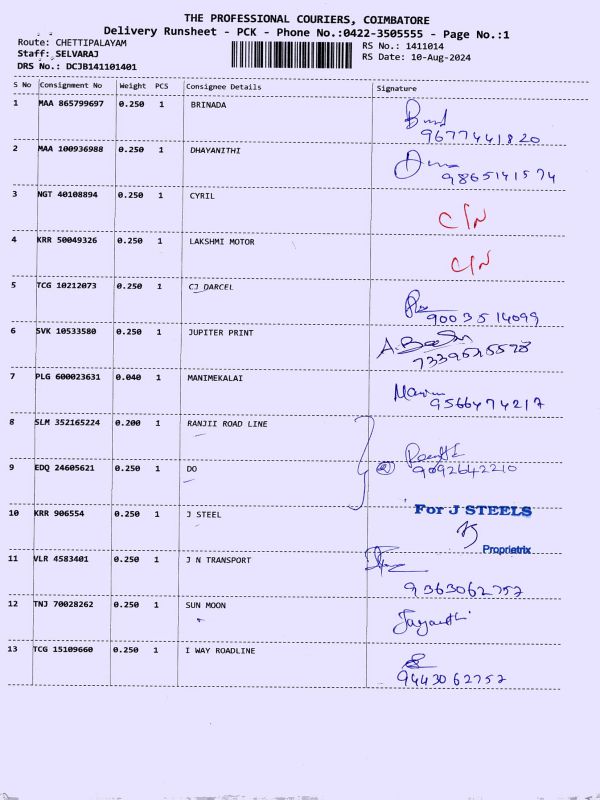 THE PROFESSIONAL COURIERS, COIMBATORE
Delivery Runsheet - PCK - Phone No.:0422-3505555 - Page No.:1
Route: CHETTIPALAYAM
RS No.: 1411014
Staff: SELVARAJ
RS Date: 10-Aug-2024
DRS No.: DCJB141101401
S No Consignment No Weight PCS Consignee Details Signature
1 MAA 865799697 0.250 1 BRINADA
9677441820
2 MAA 100936988 0.250 1 DHAYANITHI
9865141574
3 NGT 40108894 0.250 1 CYRIL
C/N
4 KRR 50049326 0.250 1 LAKSHMI MOTOR
C/N
5 TCG 10212073 0.250 1 CJ DARCEL
9003514099
6 SVK 10533580 0.250 1 JUPITER PRINT
7 PLG 600023631 0.040 1 MANIMEKALAI
9566474217
8 SLM 352165224 0.200 1 RANJII ROAD LINE
9 EDQ 24605621 0.250 1 DO
9092642210
10 KRR 906554 0.250 1 J STEEL
For J STEELS
Proprietrix
11 VLR 4583401 0.250 1 J N TRANSPORT
9363062752
12 TNJ 70028262 0.250 1 SUN MOON
Jayanthi
13 TCG 15109660 0.250 1 I WAY ROADLINE
9443062752